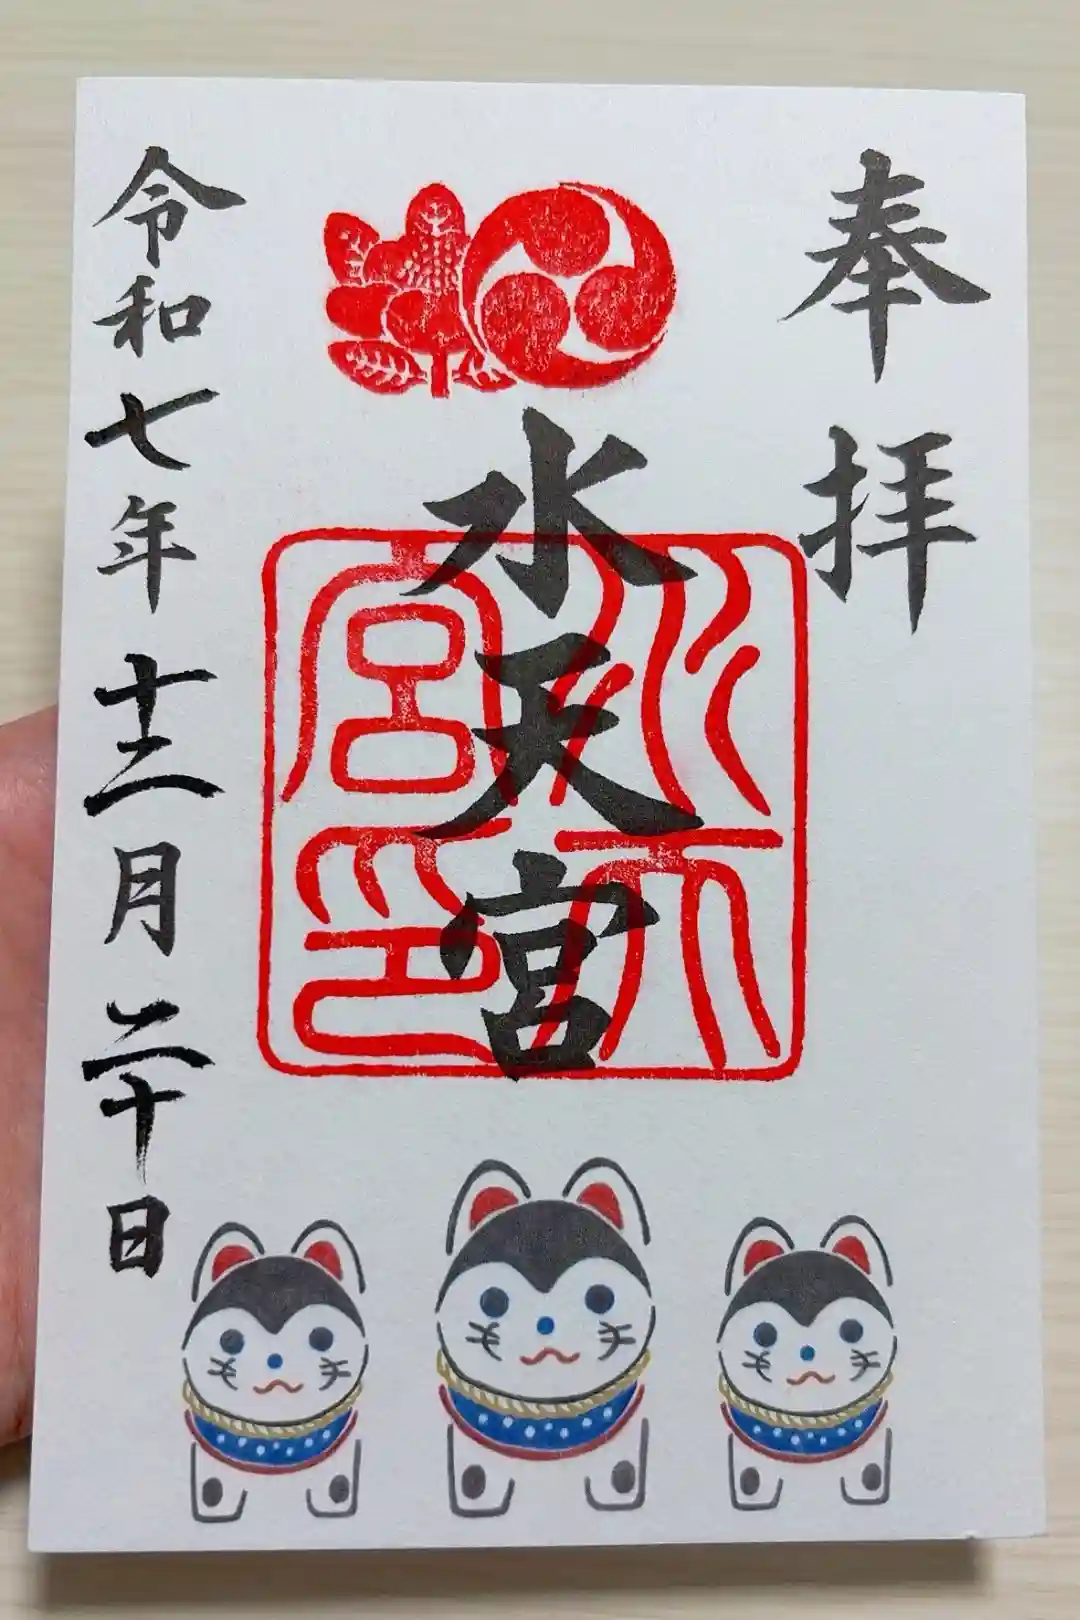 奉拝
水天宮
水天宮印
令和七年十二月二十日